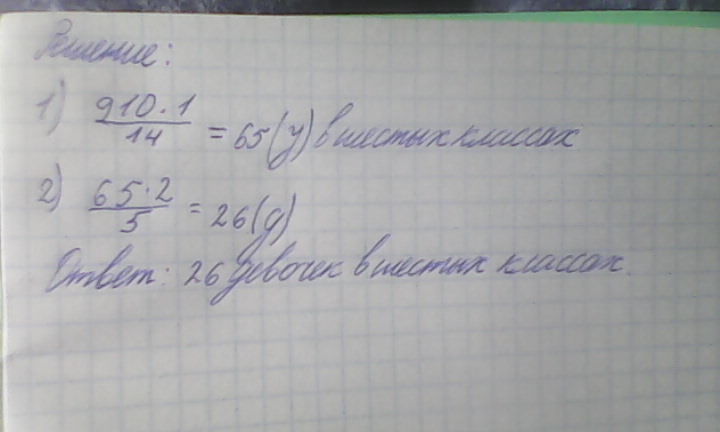 Решение:
1) 910·1/14 = 65(у) в шестых классах
2) 65·2/5 = 26(д)
Ответ: 26 девочек в шестых классах.